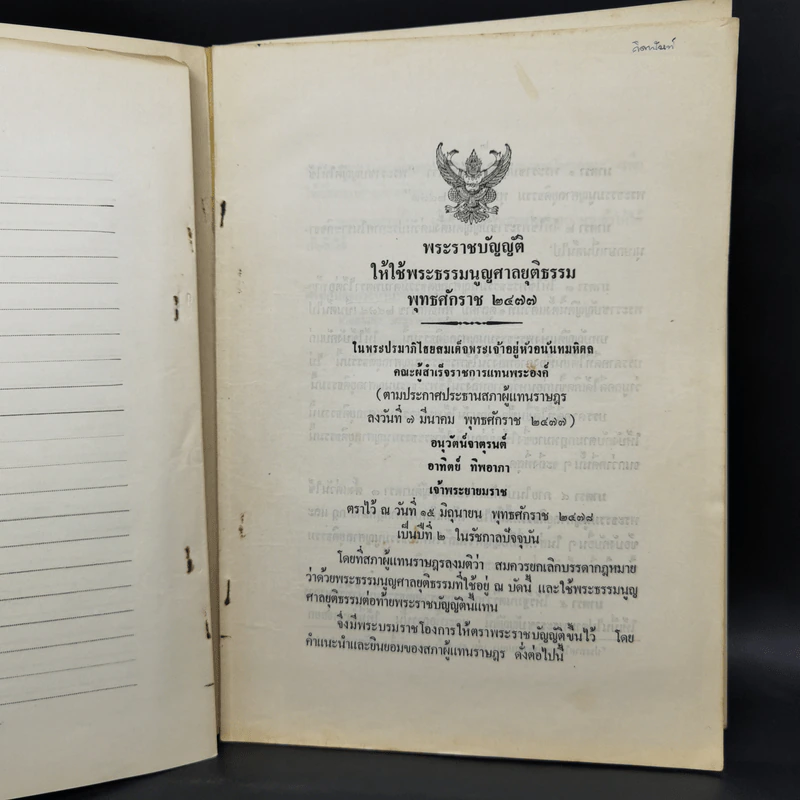 พระราชบัญญัติ
ให้ใช้พระธรรมนูญศาลยุติธรรม
พุทธศักราช ๒๔๗๗
ในพระปรมาภิไธยสมเด็จพระเจ้าอยู่หัวอนันทมหิดล
คณะผู้สำเร็จราชการแทนพระองค์
(ตามประกาศประธานสภาผู้แทนราษฎร
ลงวันที่ ๗ มีนาคม พุทธศักราช ๒๔๗๗)
อนุวัตน์จาตุรนต์
อาทิตย์ ทิพอาภา
เจ้าพระยายมราช
ตราไว้ ณ วันที่ ๑๕ มิถุนายน พุทธศักราช ๒๔๗๘
เป็นปีที่ ๒ ในรัชกาลปัจจุบัน
โดยที่สภาผู้แทนราษฎรลงมติว่า สมควรยกเลิกบรรดากฎหมาย
ว่าด้วยพระธรรมนูญศาลยุติธรรมที่ใช้อยู่ ณ บัดนี้ และใช้พระธรรมนูญ
ศาลยุติธรรมต่อท้ายพระราชบัญญัตินี้แทน
จึ่งมีพระบรมราชโองการให้ตราพระราชบัญญัติขึ้นไว้ โดย
คำแนะนำและยินยอมของสภาผู้แทนราษฎร ดั่งต่อไปนี้